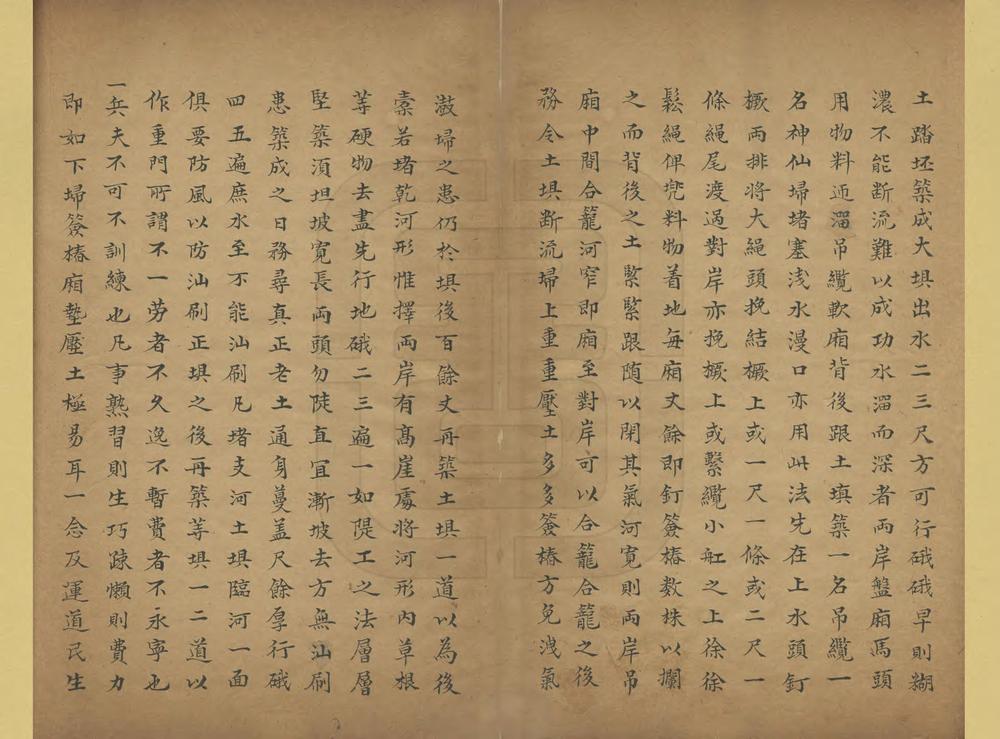 土踏坯築成大埧出水二三尺方可行硪硪早則糊
濃不能断流難以成功水溜而深者兩岸盤廂馬頭
用物料迊溜吊纜軟廂背後跟土填築一名吊纜一
名神仙埽堵塞浅水漫口亦用此法先在上水頭釘
橛兩排将大繩頭挽結橛上或一尺一條或二尺一
條繩尾渡過對岸亦挽橛上或繫纜小舡之上徐徐
鬆繩俾兠料物着地每廂丈餘即釘簽樁数株以攔
之而背後之土緊緊跟随以閉其氣河寛則兩岸吊
廂中間合籠河窄即廂至對岸可以合籠合籠之後
務令土埧断流埽上重重壓土多多簽樁方免洩氣
漖埽之患仍於埧後百餘丈再築土埧一道以為後
橐若堵乾河形惟擇兩岸有髙崖處将河形内草根
荨硬物去盡先行地硪二三遍一如隄工之法層層
堅築須坦坡寛長兩頭勿陡直宜漸坡去方無汕刷
患築成之日務尋真正老土通身蔓盖尺餘厚行硪
四五遍庶水至不能汕刷凡堵支河土埧臨河一面
俱要防風以防汕刷正埧之後再築荨埧一二道以
作重門所謂不一劳者不久逸不暫費者不永寧也
一兵夫不可不訓練也凡事熟習則生巧踈懶則費力
即如下埽簽樁廂墊壓土極易耳一念及運道民生